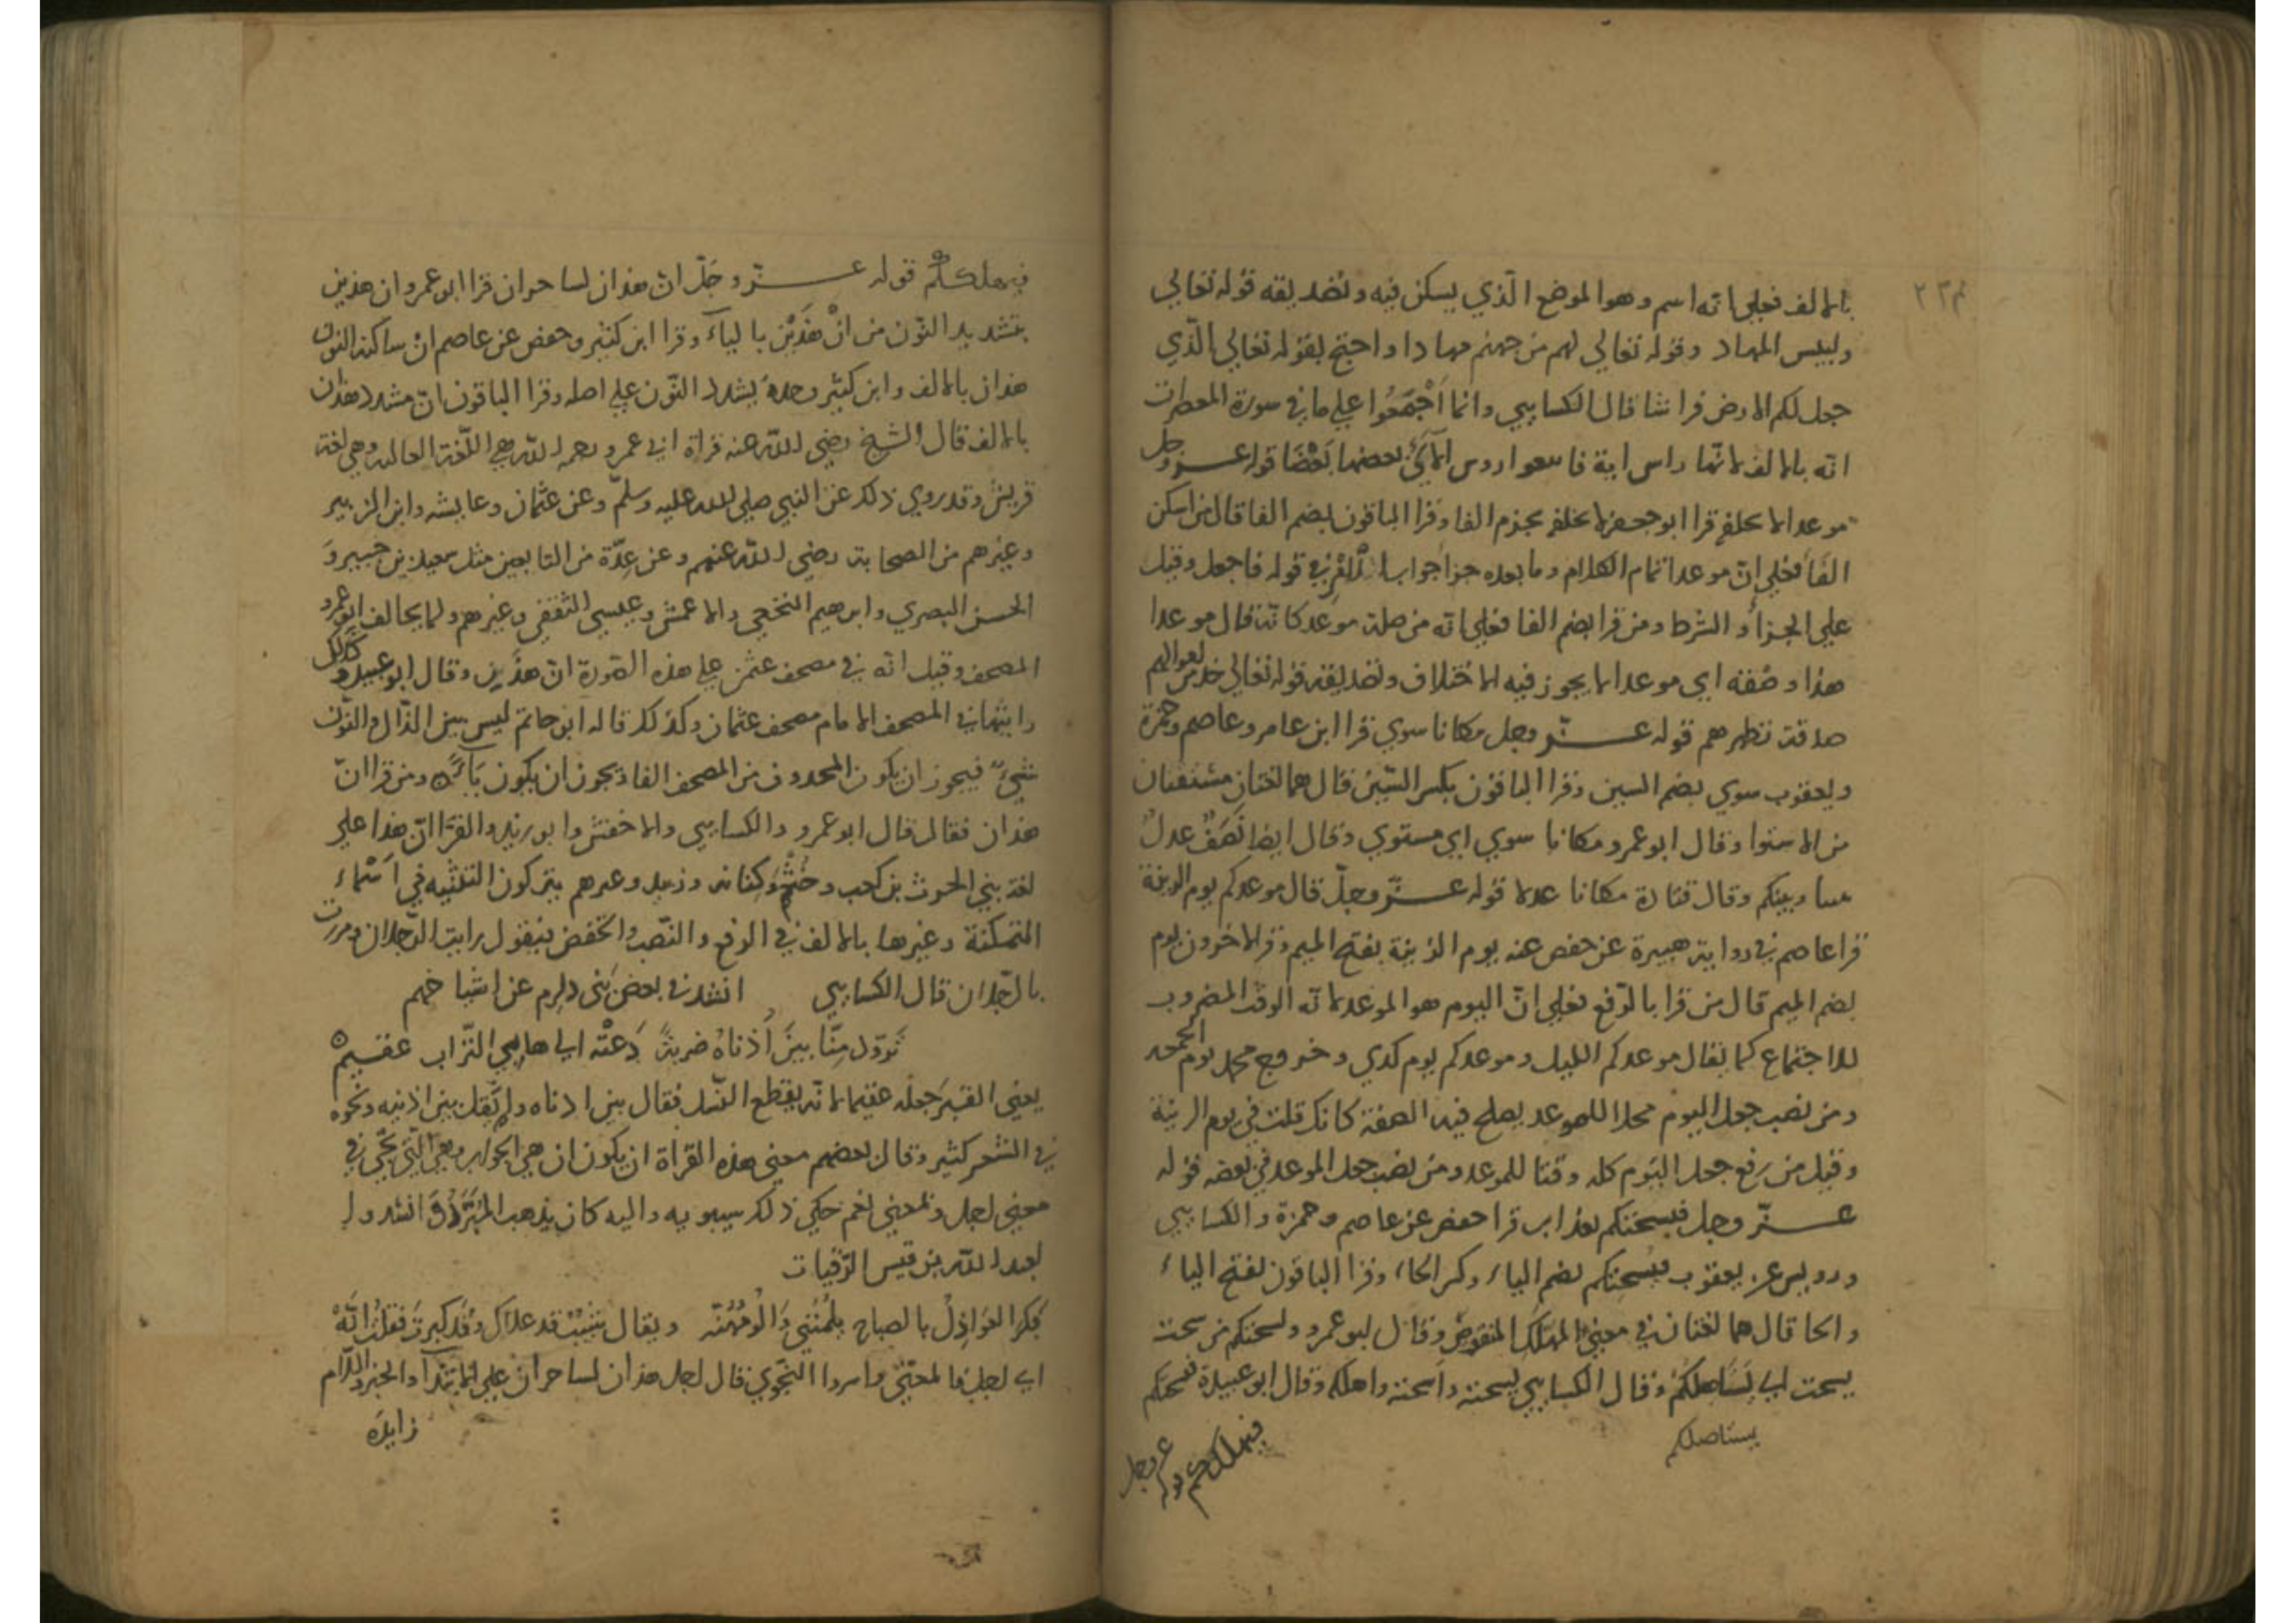 بالالف فعلى انه اسم وهو الموضع الذي يسكن فيه وتصديقه قوله تعالي
ولبيس المهاد وقوله تعالي لهم من جهنم مهادا واحتج بقوله تعالي الّذي
جعل لكم الارض فراشا قال الكسايي وانما اَجْمَعُوا علي ما في سورة
انه بالالف لانّها راس اية فاتبعوا روس الآيْ بعضها بَعْضَا قوله عزوجل
موعدا لا نخلفه قرا ابو جعفر لا نخلفه بجزم الفا وقرا الباقون بضم الفا قال من اسكن
الفَا فعلي انّ موعدا تمام الكلام وما بعده جزا جواب الاَمْر في قوله فاجعل وقيل
علي الجزا والشرط ومن قرا بضم الفا فعلي انه من صلة موعد كانّه قال موعدا
هذا وصفته اي موعدا لا يجوز فيه الاختلاف وتصديقه قوله تعالي خذ من اموالهم
صدقة تطهرهم قوله عزّ وجل مكانا سوي قرا ابن عامر وعاصم وحمزة
ويعقوب سوي بضم السين وقرا الباقون بكسر السّين قال هما لغتان مشتقتان
من الاستوا وقال ابو عمرو مكانا سوي اي مستوي وقال ايضا نَصَفٌ عدلٌ
بيننا وبينكم وقال قتادة مكانا عدلا قوله عزّ وجلّ قال موعدكم يوم الزينة
قرا عاصم في رواية هبيرة عن حفص عنه يوم الزينة بفتح الميم وقرا الاخرون يوم
بضم الميم قال من قرا بالرّفع فعلي انّ اليوم هو الموعد لانه الوقت المضروب
للاجتماع كما يقال موعدكم الليل وموعدكم يوم كدي وخروج محمد يوم الجمعه
ومن نصب جعل اليوم محلا للموعد يصلح فيه الصفة كانك قلت في يوم الزينة
وقيل من رفع جعل اليوم كله وقتا للموعد ومن نصب جعل الموعد في بعضه قوله
عزّ وجل فيسحتكم بعذاب قرا حفص عن عاصم وحمزة والكسايي
ورويس عن يعقوب فيُسحِتكم بضم الياء وكسر الحاء وقرا الباقون بفتح الياء
والحا قال هما لغتان في معني وقال ابو عمرو ولسحتكم من سحت
يسحت اي يَسْتَاصلكُمْ وقال الكسايي يسحته واسحته واهلكه وقال ابو عبيدة فيسحتكم
يستاصلكم
فيهلككم قوله عز وجل
فيهلككُمْ قوله عزّ وجَلّ انّ هذان لساحران قرا ابو عمرو ان هذين
بتشديد النّون من انّ هٰذَيْن بالياءَ وقرا ابن كثير وحفص عن عاصم انْ ساكنه النون
هذان بالالف وابن كثير وحدهُ يشدد النّون علي اصله وقرا الباقون انّ مشدد هٰذان
بالالف قال الشيخ رضي اللّه عنه قراة ابي عمرو رحمه اللّه هي اللّغة العاليه وهي لغة
قريش وقد روي ذلك عن النبي صلي الله عليه وسلّم وعن عثمان وعايشه وابن الزبير
وغيرهم من الصحابة رضي اللّه عنهم وعن عِدّة من التابعين مثل سعيد بن جبير وَ
الحسن البصري وابرهيم النخعي والاعمش وعيسي الثقفي وغيرهم ولا يخالف ابو عمرو
المصحف وقيل انه في مصحف عثمن علي هذه الصّورة ان هذين وقال ابو عبيد وَكذلك
رايتها في المصحف الامام مصحف عثمان وكذلك قاله ابو حاتم ليس بين الذّال والنّون
شيْئٌ فيجوز ان يكون المحذوف من المصحف الفا ويجوز ان يكون يَآءً ومن قرا انّ
هذان فقال قال ابو عمرو والكسايي والاخفش وابو زيد والفرّا انّ هذا علي
لغة بني الحرث بن كعب وخثعم وكنانه وزبيد وغيرهم يتركون التثنيه في اسْماء
المتمكنة وغيرها بالالف في الرفع والنّصب والخفض فيقول رايت الرّجلان ومررت
بالرّجلان قال الكسايي انشدني بعض بَني عن اشياخهم
تَزوّد مِنّا بينَ اُذناهُ ضربةً دَعتْه الي هابِي التّراب عقيمُ
يعني القبر جعله عقيما لانّه يقطع النّسل فقال بين اذناه ولم يَقل بين اذنيه ونحوه
في الشعر كثير وقال بعضهم معني هذه القراة ان يكون ان هي الجواب وهي الّتي تجي في
معني اجل وبمعني نعم حكي ذلك سيبويه واليه كان يذهب المبَرّدُ وَ انشدوا
لعبد اللّه بن قيس الرّقيات
بَكرَ العَواذِلُ بالصباح يلُمْنَني وَاَلُومُهُنّه ويقال شَيبٌ قد علاك وقد كبرتَ فقلتُ اِنّهْ
اي اجل بالمعني واما النّحوي قال اجل هذان لساحران علي الابتدآ والخبر واللّام
زايدة